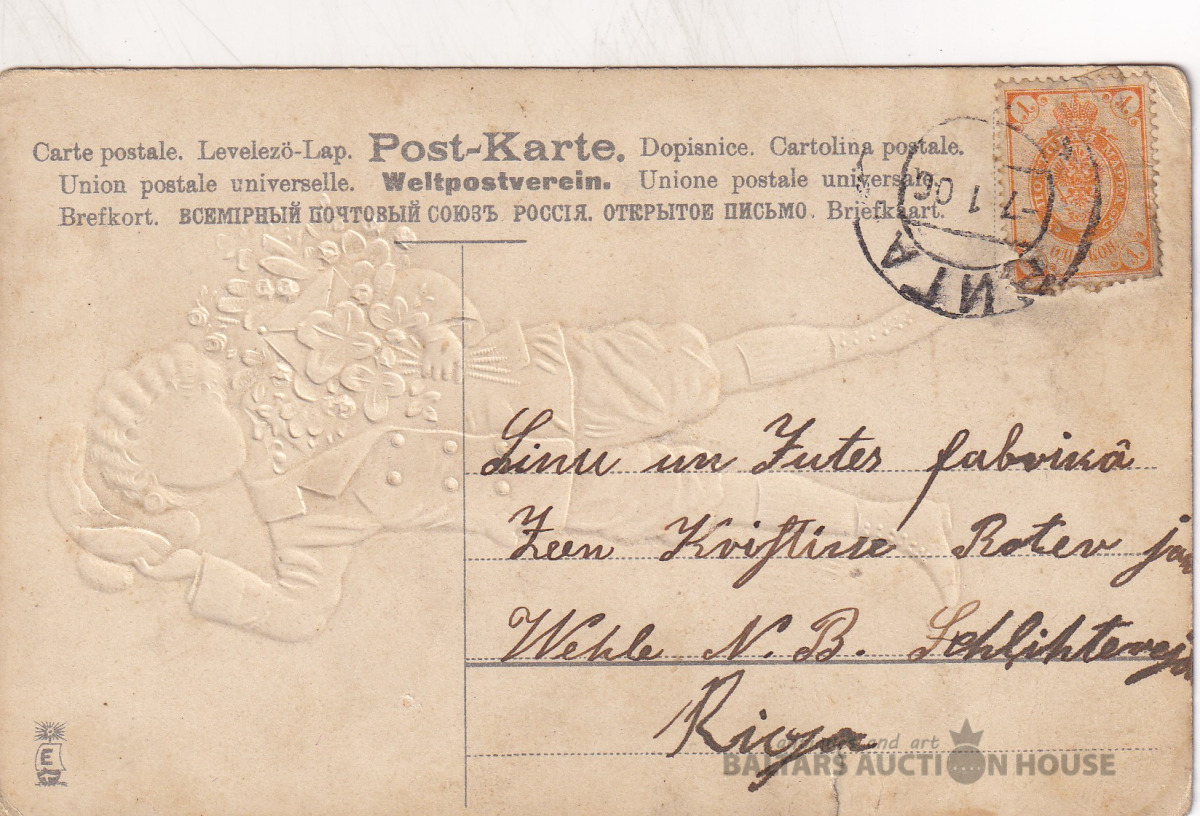 Carte postale. Levelezö-Lap. Post-Karte. Dopisnice. Cartolina postale.
Union postale universelle. Weltpostverein. Unione postale universale.
Brefkort. ВСЕМІРНЫЙ ПОЧТОВЫЙ СОЮЗЪ. РОССІЯ. ОТКРЫТОЕ ПИСЬМО. Briefkaart.
РИГА
-7 1 06
Linu un Jutes fabrikâ
Zeen Kristine Roter
Wehle N. B.
Riga
E
and art
BALTARS AUCTION HOUSE